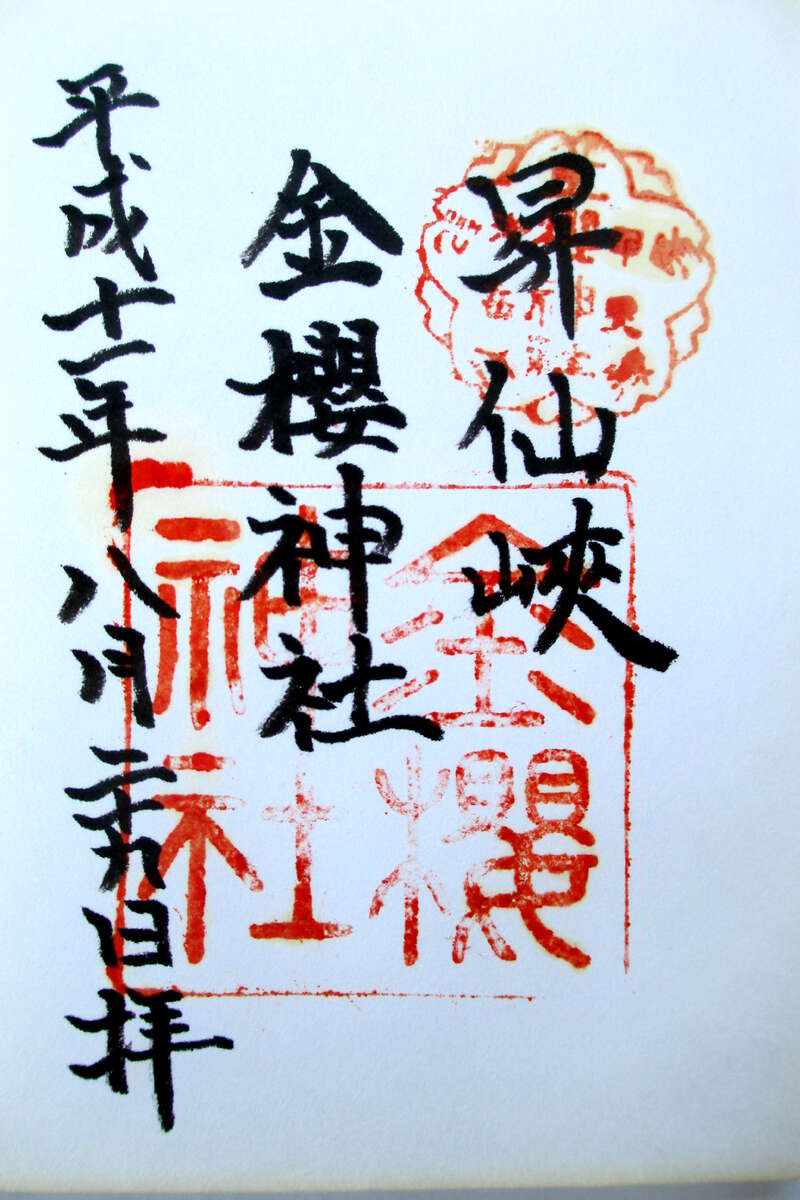 昇仙峡
金櫻神社
平成十一年八月二十九日拝
金櫻
神社